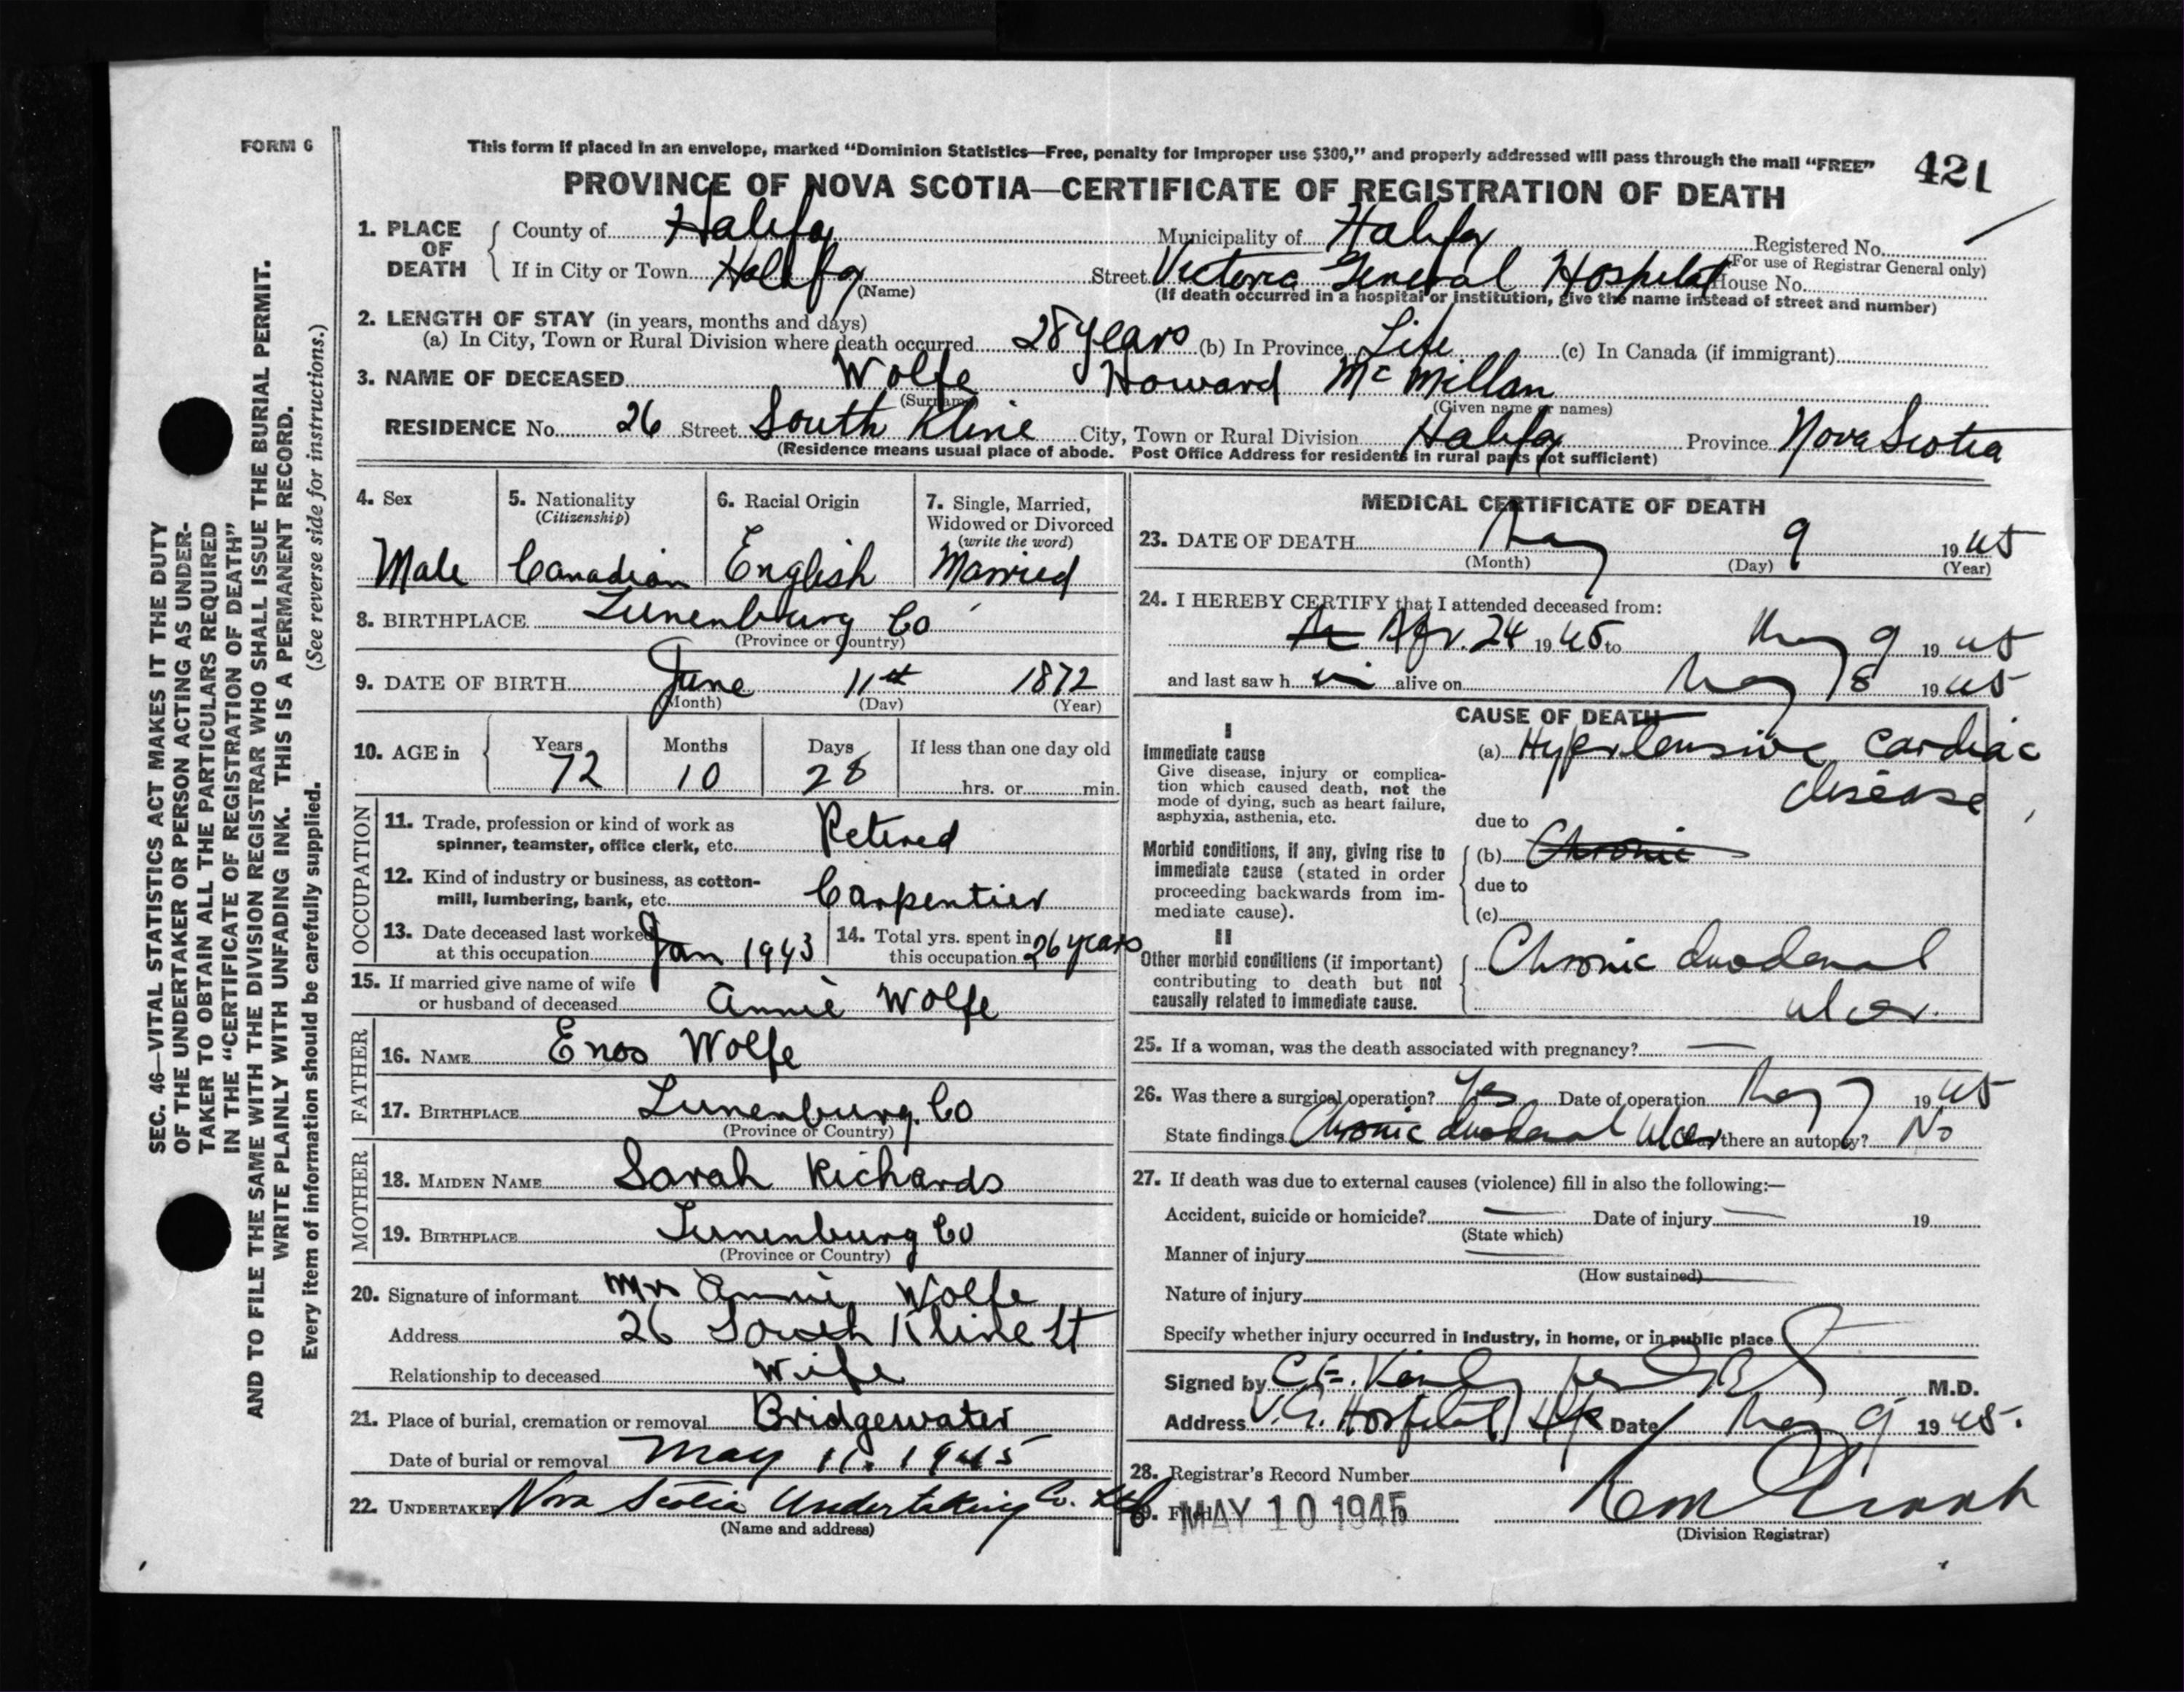 FORM 6
This form if placed in an envelope, marked “Dominion Statistics—Free, penalty for improper use $300,” and properly addressed will pass through the mail “FREE”
421
PROVINCE OF NOVA SCOTIA—CERTIFICATE OF REGISTRATION OF DEATH
1. PLACE OF DEATH
County of Halifax Municipality of Halifax Registered No.
(For use of Registrar General only)
If in City or Town Halifax Street Victoria General Hospital House No.
(Name) (If death occurred in a hospital or institution, give the name instead of street and number)
2. LENGTH OF STAY (in years, months and days)
(a) In City, Town or Rural Division where death occurred 28 years (b) In Province Life (c) In Canada (if immigrant)
3. NAME OF DECEASED Wolfe Howard McMillan
(Surname) (Given name or names)
RESIDENCE No. 26 Street South Kline City, Town or Rural Division Halifax Province Nova Scotia
(Residence means usual place of abode. Post Office Address for residents in rural parts not sufficient)
4. Sex
Male
5. Nationality
(Citizenship)
Canadian
6. Racial Origin
English
7. Single, Married,
Widowed or Divorced
(write the word)
Married
8. BIRTHPLACE Lunenburg Co
(Province or Country)
9. DATE OF BIRTH June 11th 1872
(Month) (Day) (Year)
10. AGE in
Years Months Days If less than one day old
72 10 28 hrs. or min.
OCCUPATION
11. Trade, profession or kind of work as
spinner, teamster, office clerk, etc. Retired
12. Kind of industry or business, as cotton-
mill, lumbering, bank, etc. Carpentier
13. Date deceased last worked
at this occupation Jan 1943
14. Total yrs. spent in
this occupation 26 years
15. If married give name of wife
or husband of deceased Annie Wolfe
FATHER
16. NAME Enos Wolfe
17. BIRTHPLACE Lunenburg Co
(Province or Country)
MOTHER
18. MAIDEN NAME Sarah Richards
19. BIRTHPLACE Lunenburg Co
(Province or Country)
20. Signature of informant Mrs Annie Wolfe
Address 26 South Kline St
Relationship to deceased Wife
21. Place of burial, cremation or removal Bridgewater
Date of burial or removal May 11. 1945
22. UNDERTAKER Nova Scotia Undertaking Co. Ltd
(Name and address)
MEDICAL CERTIFICATE OF DEATH
23. DATE OF DEATH May 9 1945
(Month) (Day) (Year)
24. I HEREBY CERTIFY that I attended deceased from:
Apr. 24 1945 to May 9 1945
and last saw h im alive on May 8 1945
CAUSE OF DEATH
I
Immediate cause
Give disease, injury or complica-
tion which caused death, not the
mode of dying, such as heart failure,
asphyxia, asthenia, etc.
(a) Hypertensive cardiac
disease
due to
Morbid conditions, if any, giving rise to
immediate cause (stated in order
proceeding backwards from im-
mediate cause).
(b) Chronic
due to
(c)
II
Other morbid conditions (if important)
contributing to death but not
causally related to immediate cause.
Chronic duodenal
ulcer.
25. If a woman, was the death associated with pregnancy? —
26. Was there a surgical operation? Yes Date of operation May 7 1945
State findings Chronic duodenal ulcer there an autopsy? No
27. If death was due to external causes (violence) fill in also the following:—
Accident, suicide or homicide? — Date of injury — 19
(State which)
Manner of injury
(How sustained)
Nature of injury
Specify whether injury occurred in industry, in home, or in public place
Signed by C.E. M.D.
Address V.G. Hospital Hfx Date May 9 1945.
28. Registrar's Record Number
29. Filed MAY 10 1945
(Division Registrar)
SEC. 46—VITAL STATISTICS ACT MAKES IT THE DUTY
OF THE UNDERTAKER OR PERSON ACTING AS UNDER-
TAKER TO OBTAIN ALL THE PARTICULARS REQUIRED
IN THE “CERTIFICATE OF REGISTRATION OF DEATH”
AND TO FILE THE SAME WITH THE DIVISION REGISTRAR WHO SHALL ISSUE THE BURIAL PERMIT.
WRITE PLAINLY WITH UNFADING INK. THIS IS A PERMANENT RECORD.
Every item of information should be carefully supplied. (See reverse side for instructions.)